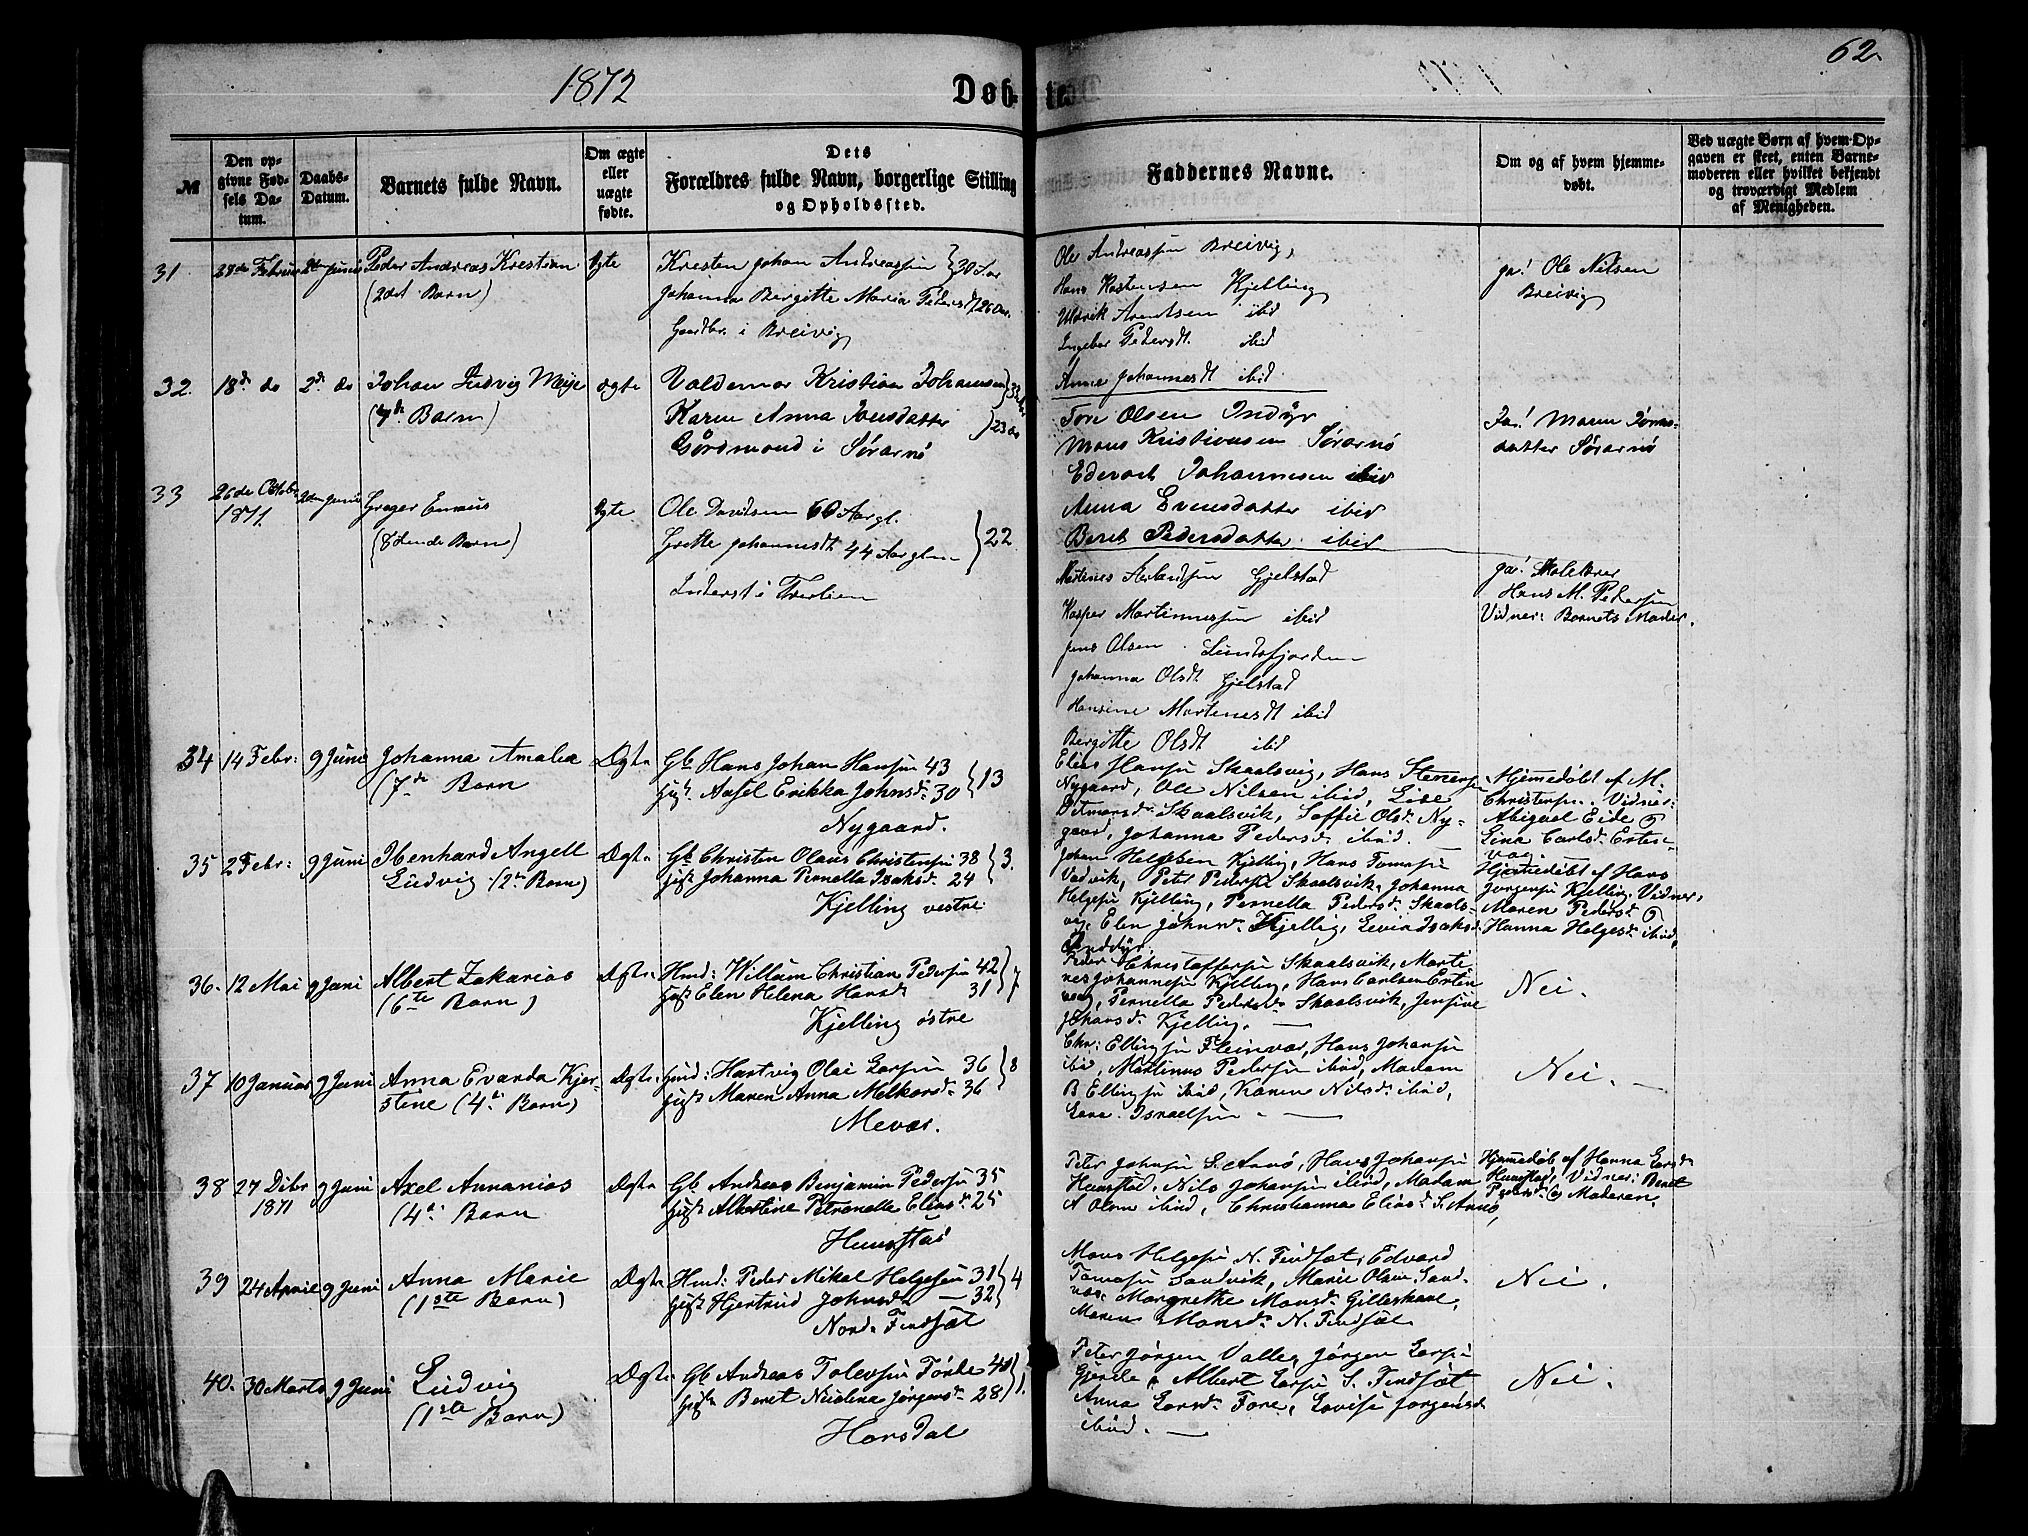 1872
Døb-te
62
№
Den opgivne Fødsels Datum.
Daabs-Datum.
Barnets fulde Navn.
Om ægte eller uægte fødte.
Dets Forældres fulde Navn, borgerlige Stilling og Opholdssted.
Faddernes Navne.
Om og af hvem hjemmedøbt.
Ved uægte Børn af hvem Opgaven er skeet, enten Barnemoderen eller hvilket bekjendt og troværdigt Medlem af Menigheden.
31 28de Februar 2den Junii Peder Andreas Krestian
(2det Barn)
Ægte
Kresten Johan Andreassen } 30 Aar
Johanna Bergitte Maria Pedersdt } 26 Aar
Gaardbr. i Breivig
Ole Andreassen Breivig,
Hans Kastensen Kjelling
Uldrik Arentsen ibid
Ingebor Pedersdt ibid
Anne Johannesdt ibid
ja! Ole Nilsen
Breivig
32. 18de do 2de do Johan Ludvig Meije
Barn)
ægte
Valdemar Kristian Johansen
Karen Anna Jonsdatter } 23 do
Gårdmand i Sørarnø
Tore Olsen Indyr
Mons Kristiansen Sørarnø
Edevart Johannesen ibid
Anna Evensdatter ibid
Beret Pedersdatter ibid
Ja! Maren Jonsdatter Sørarnø
33 26de Octobr 1871 2den Junii Greger Enevus
(8tende Barn)
Ægte
Ole Davidsen 60 Aar gl.
Grette Johannesdt 44 Aar glm } 22
Inderst i Tverlien
Martines Gjelstad
Kasper Martinnessen ibid
Jens Olsen Lundsfjorden
Johanna Olsdt Gjelstad
Hansine Martinesdt ibid
Bergitte Olsdt ibid
ja! Skolelærer
Hans M. Pedersen
Vidner: Barnets Moder.
34 14 Febr: 9 Juni Johanna Amalia
(7de Barn
Ægte
Gb Hans Johan Hansen 43
Hust Axsel Erikka Johnsd: 30 } 13
Nygaard.
Elias Hansen Skaalsvig, Hans Stenersen
Nygaard, Ole Nilsen ibid, Lise
Ditmarsd: Skaalsvik, Soffie Olsd: Nygaard, Johanna Pedersd: ibid.
Hjemedøbt af M.
Christensen. Vidner:
Abigael Eide &
Lina Carlsd: Ertenvaag.
35 2 Febr: 9 Juni Ibenhard Angell
Ludvig (2de Barn)
Ægte
Gb Christen Olaus Christensen 38
Hust Johanna Pernella Isaksd: 24 } 3.
Kjelling vestre
Johan Helgesen Kjelling, Hans Tomasen
Vadvik, Peter Pedersen Skaalsvik, Johanna
Helgesen Kjelling, Pernella Pedersd: Skaalsvig, Elen Johnsd: Kjelling,
Inddyr.
Hjemedøbt af Hans
Jørgensen Kjelling. Vidner,
Maren Pedersd: &
Hanna Helgesd: ibid.
36. 12 Mai 9 Juni Albert Zakarias
(6te Barn)
Ægte
Hmd: Willum Christian Pedersen 42
Hust Elen Helena Hansd: 31 } 7
Kjelling østre
Peder Christoffersen Skaalsvik, Martines Johannesen Kjelling, Hans Carlsen Ertenvaag, Pernella Pedersd: Skaalsvik, Jensine
Johansd: Kjelling.
Nei.
37 10 Januar 9 Juni Anna Evarda Kjerstene (4de Barn)
Ægte
Hmd: Hartvig Olai Larsen 36
Hust Maren Anna Melkersd: 36 } 8
Mevær.
Chr: Ellingsen Fleinvær, Hans Johansen
ibid, Martinus Pedersen ibid, Madam
B Ellingsen ibid, Karen Nilsd: ibid,
Lars Israelsen
Nei.
38 27 Dcbr 1871 9 Juni Axel Annanias
(4de Barn
Ægte
Gb Andreas Benjamin Pedersen 35
Hust Albertine Petronelle Eliasd: 25
Hunstad
Peter Johnsen S. Arnø, Hans Johansen
Hunstad, Nils Johansen ibid, Madam
A Olsen ibid, Christianna Eliasd: S. Arnø,
Hjemedøb af Hanna Larsd:
Hunstad, Vidner: Beret
Pedersd: og Moderen.
39 24 April 9 Juni Anna Marie
(1ste Barn)
Ægte
Hmd: Peder Mikal Helgesen 31
Hust Hjertrud Johnsd: — 32 } 4
Nord: Findsæt
Mons Helgesen N. Findsæt, Edvard
Tomasen Sandvik, Marie Olsen Sandvig, Margrethe Monsd: Gilleskaal,
Maren Monsd: N. Findsæt.
Nei.
40. 30 Marts 9 Juni Ludvig
(1ste Barn)
Ægte
Gb Andreas Tolevsen Førde 40
Hust Beret Nicolina Jørgensd: 28 } 1.
Horsdal
Peter Jørgen Valle, Jørgen Larsen
Gjerde, Albert Larsen S. Findsæt
Anna Larsd: Fore, Lovise Jørgensd:
ibid.
Nei.